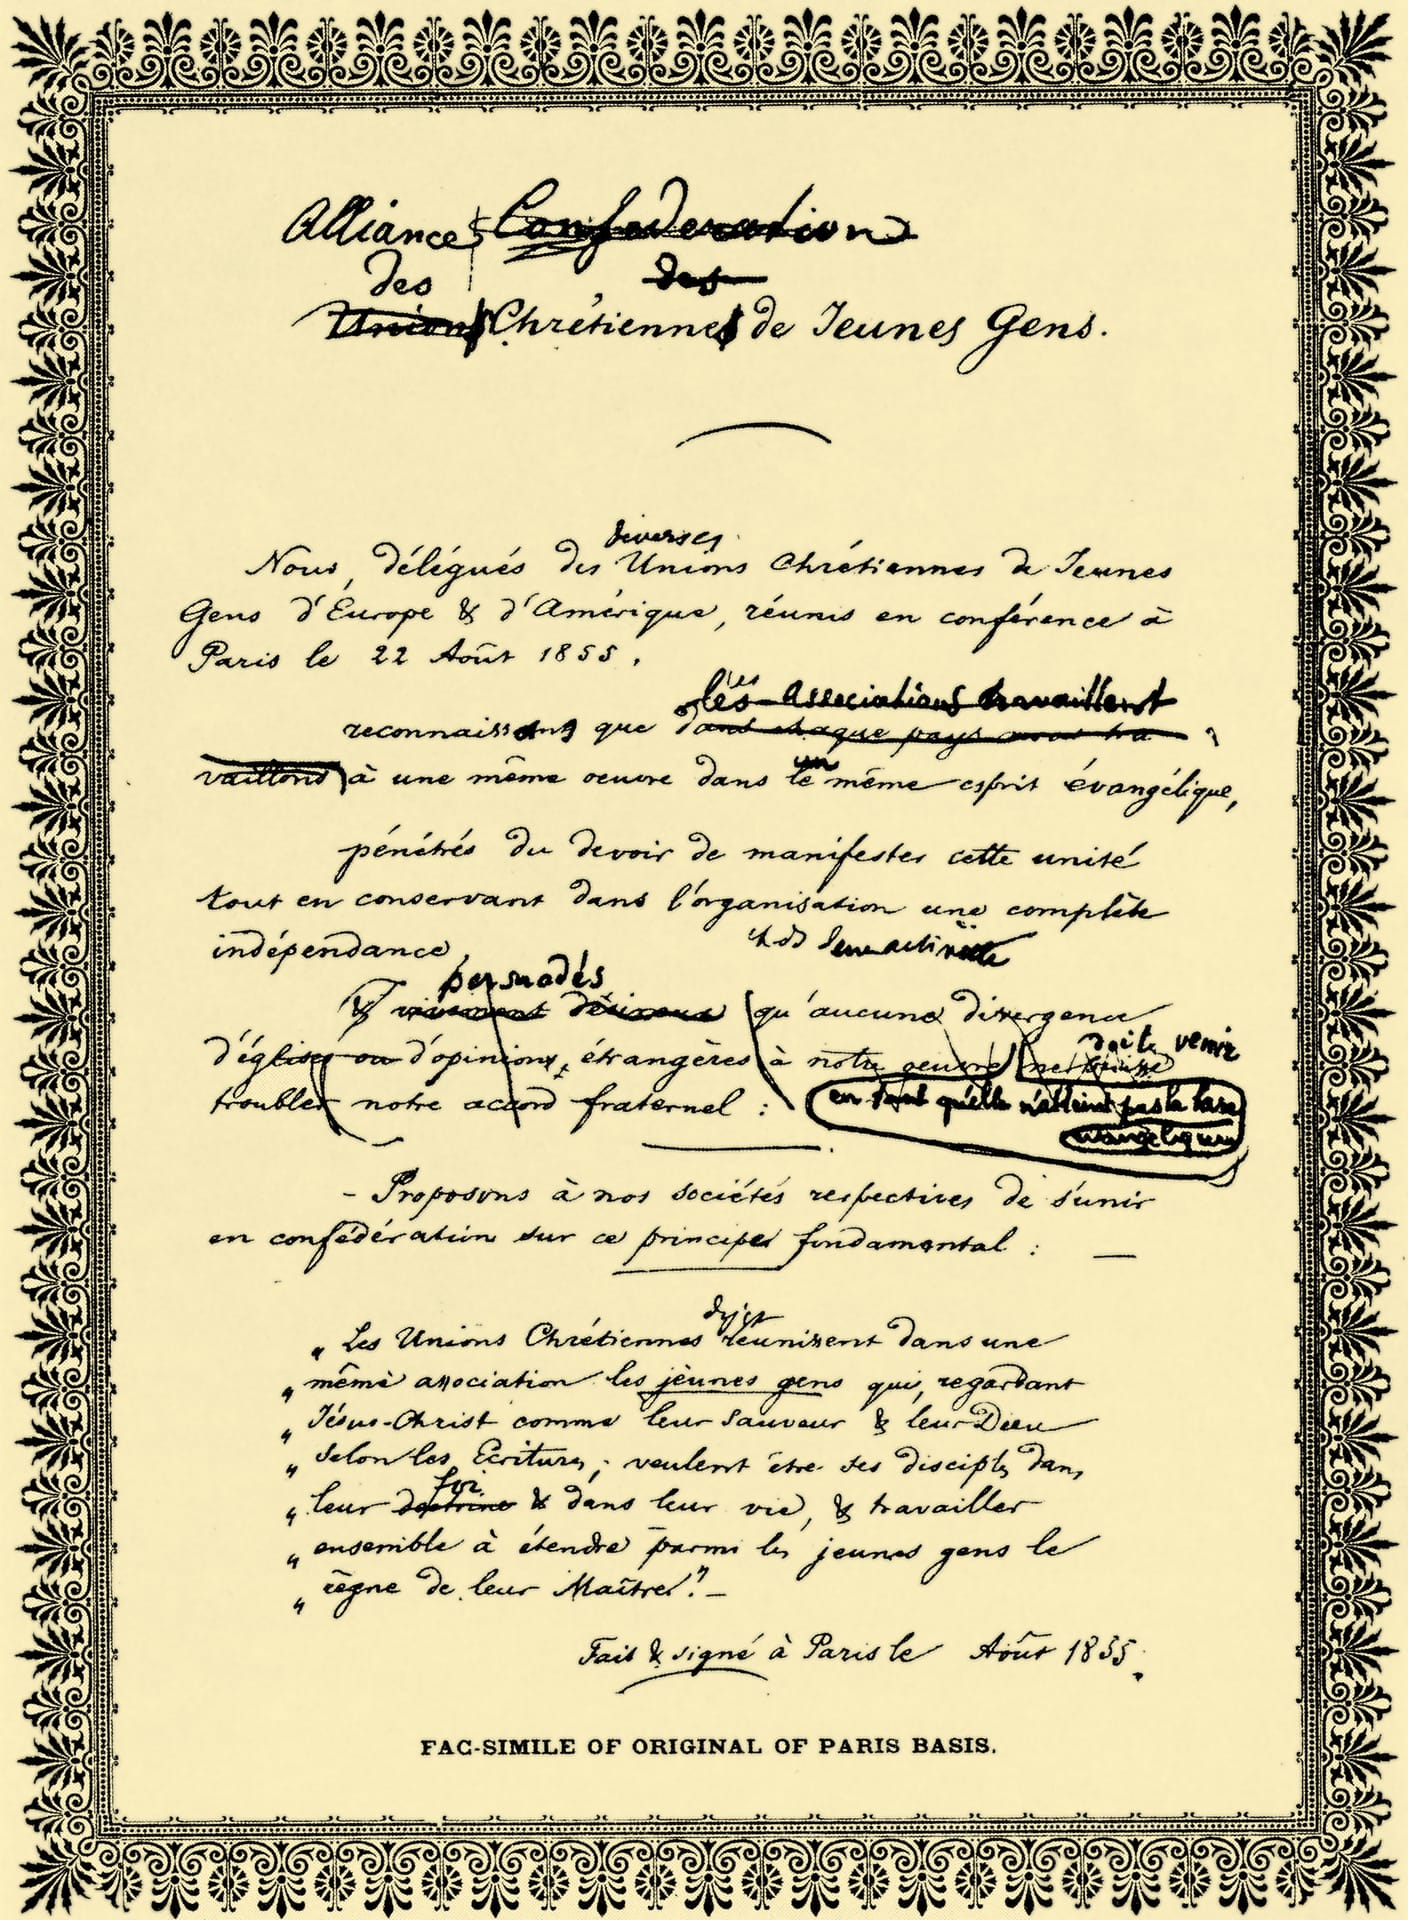 Alliance Confédération
des des
Unions Chrétiennes de Jeunes Gens.
diverses
Nous, délégués des Unions Chrétiennes de Jeunes
Gens d'Europe & d'Amérique, réunis en conférence à
Paris le 22 Août 1855,
les Associations travaillent
reconnaissons que dans chaque pays nous tra
vaillons à une même oeuvre dans le un même esprit évangélique,
pénétrés du devoir de manifester cette unité
tout en conservant dans l'organisation une complète
indépendance,
persuadés
& vivement désireux qu'aucune divergence
d'églises ou d'opinions, étrangères à notre oeuvre ne puisse
doit venir
troubler notre accord fraternel :
en tant qu'elle n'atteint pas la base
évangélique
– Proposons à nos sociétés respectives de s'unir
en confédération sur ce principe fondamental : —
„ Les Unions Chrétiennes réunissent dans une
„ même association les jeunes gens qui, regardant
„ Jésus-Christ comme leur Sauveur & leur Dieu
„ selon les Ecritures, veulent être ses disciples dans
foi
„ leur doctrine & dans leur vie, & travailler
„ ensemble à étendre parmi les jeunes gens le
„ règne de leur Maître." –
Fait & signé à Paris le Août 1855.
FAC-SIMILE OF ORIGINAL OF PARIS BASIS.